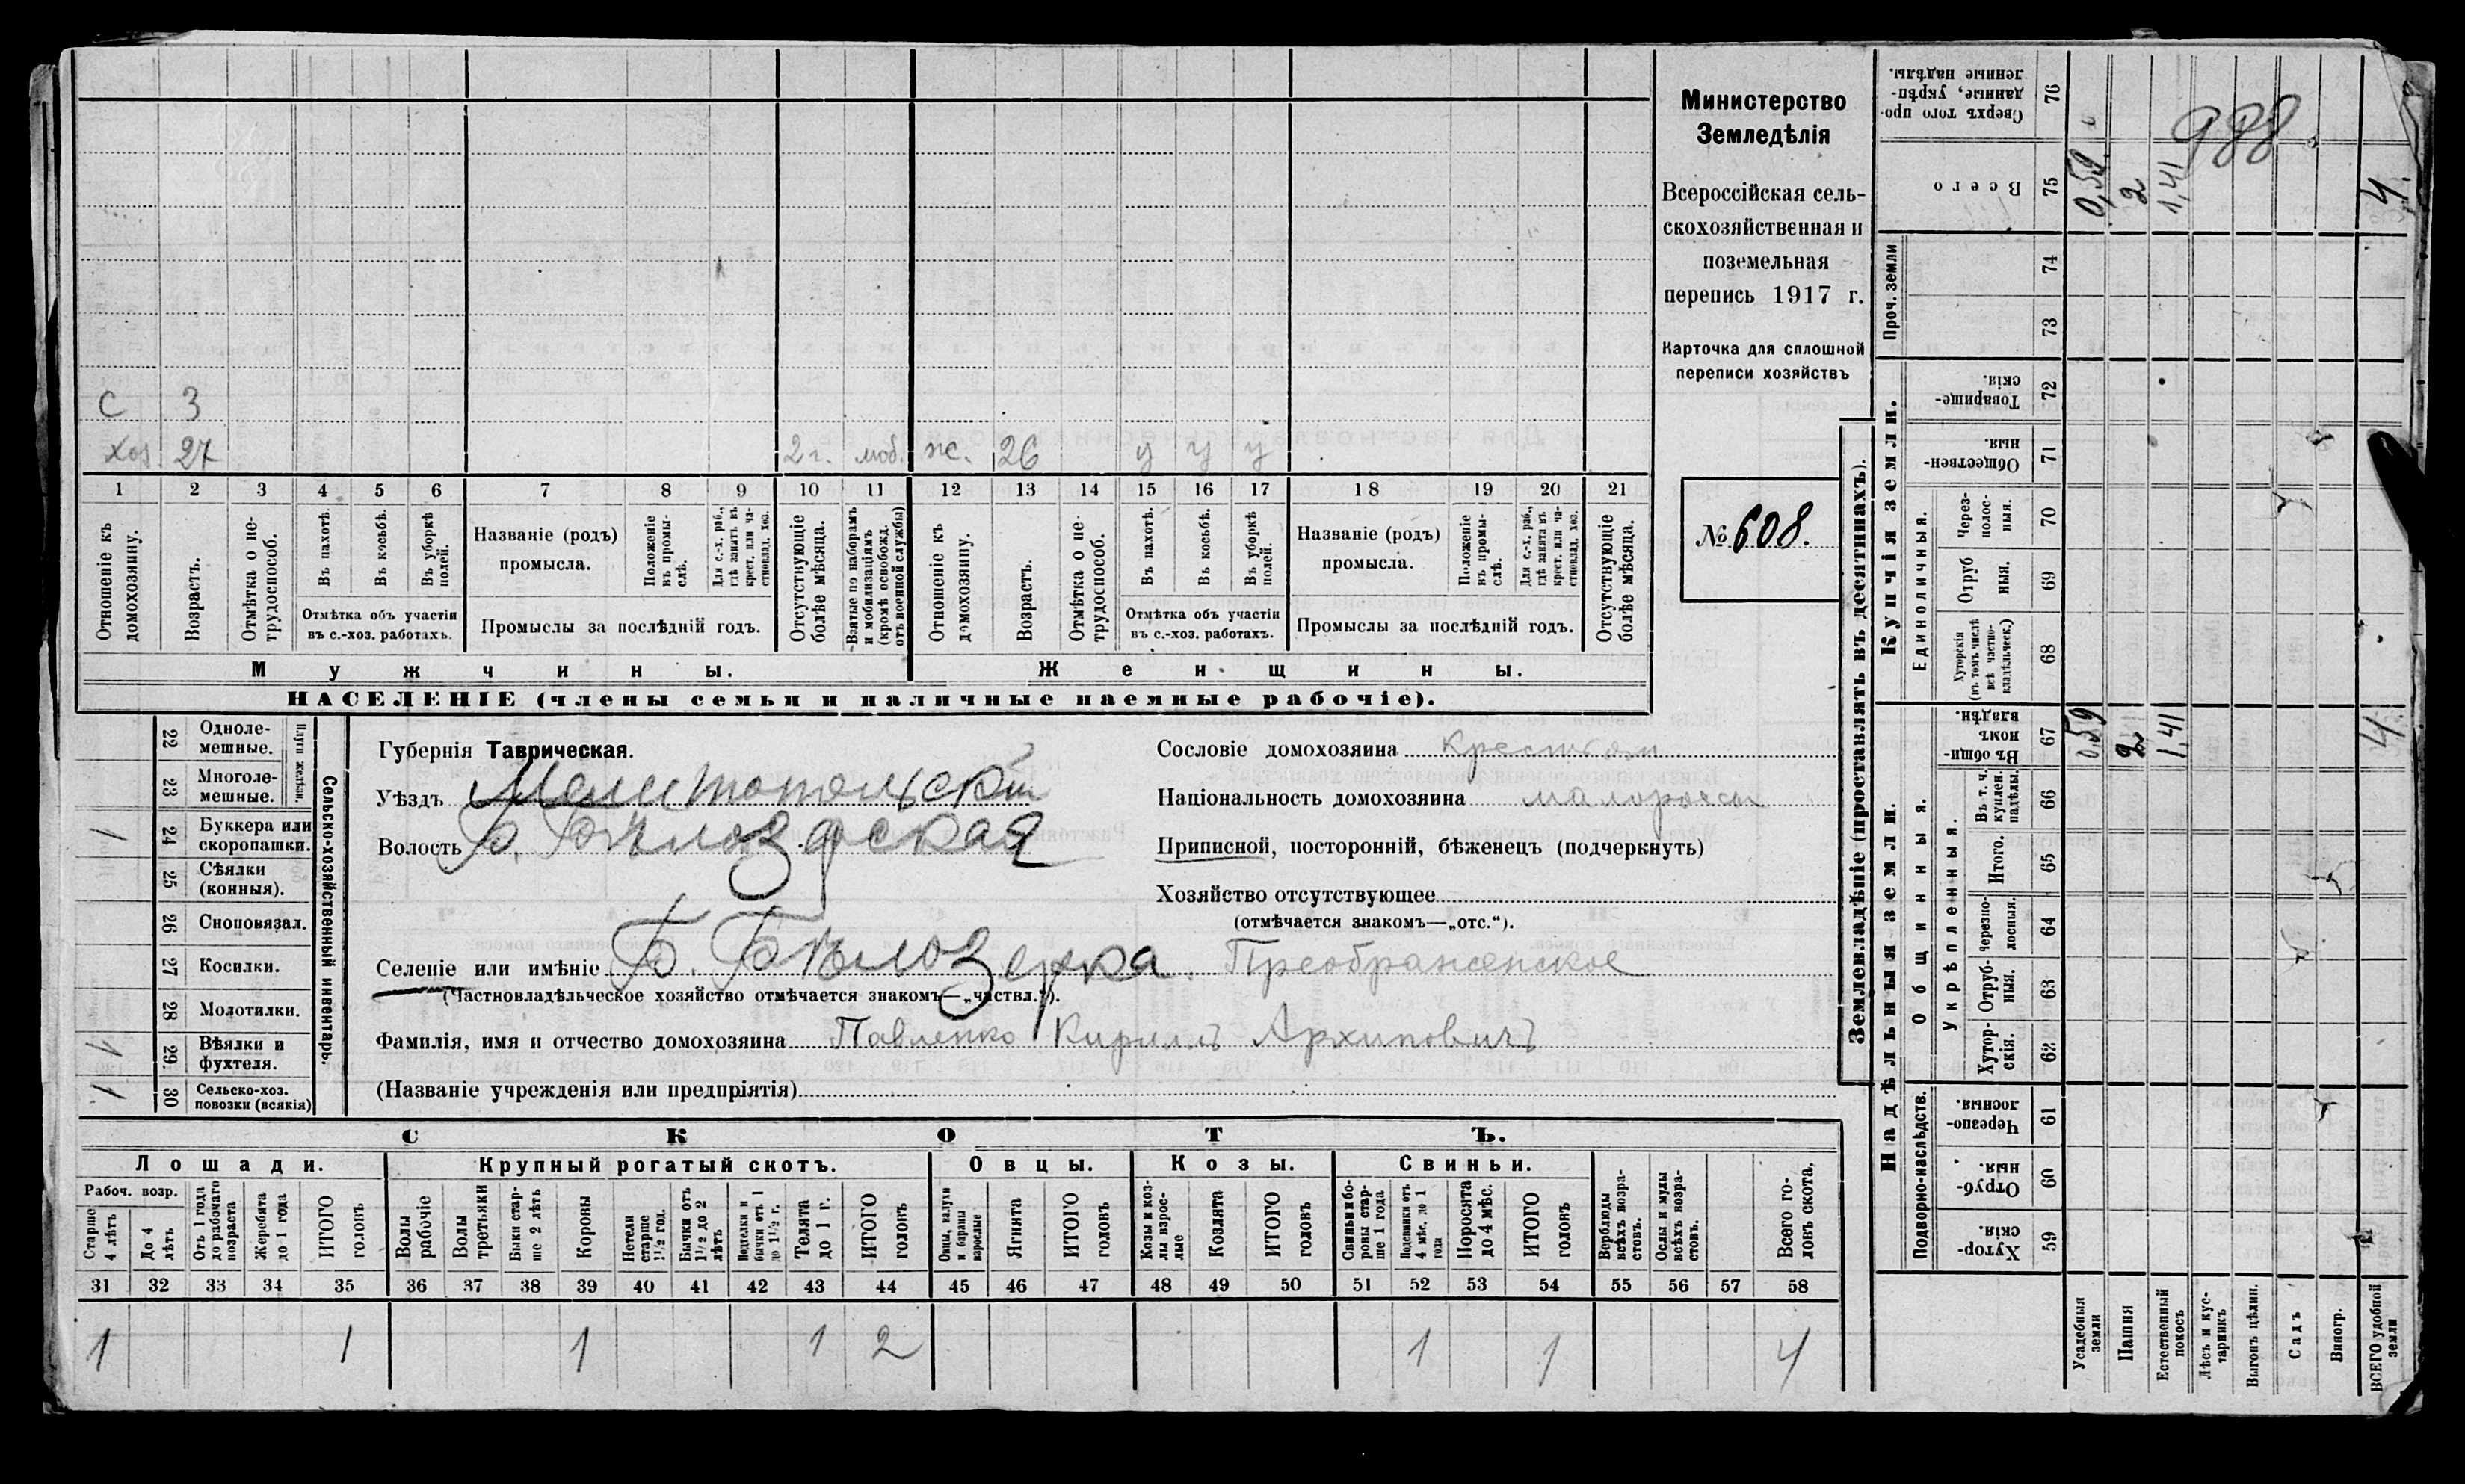 Министерство
Земледѣлія
Всероссійская сель-
скохозяйственная и
поземельная
перепись 1917 г.
Карточка для сплошной
переписи хозяйствъ
№ 608.
С 3
хоз. 27 2 г. моб. ж. 26 у у у
1 2 3 4 5 6 7 8 9 10 11 12 13 14 15 16 17 18 19 20 21
Отношеніе къ домохозяину.
Возрастъ.
Отмѣтка о не-трудоспособ.
Въ пахотѣ.
Въ косьбѣ.
Въ уборкѣ полей.
Отмѣтка объ участіи
въ с.-хоз. работахъ.
Названіе (родъ)
промысла.
Положеніе въ промы-слѣ.
Для с.-х. раб., гдѣ занятъ въ крест. или ча-стновлад. хоз.
Промыслы за послѣдній годъ.
Отсутствующіе болѣе мѣсяца.
Взятые по наборамъ и мобилизаціямъ (кромѣ освобожд. отъ военной службы)
Отношеніе къ домохозяину.
Возрастъ.
Отмѣтка о не-трудоспособ.
Въ пахотѣ.
Въ косьбѣ.
Въ уборкѣ полей.
Отмѣтка объ участіи
въ с.-хоз. работахъ.
Названіе (родъ)
промысла.
Положеніе въ промы-слѣ.
Для с.-х. раб., гдѣ занята въ крест. или ча-стновлад. хоз.
Промыслы за послѣдній годъ.
Отсутствующіе болѣе мѣсяца.
Мужчины. Женщины.
НАСЕЛЕНІЕ (члены семьи и наличные наемные рабочіе).
Сельско-хозяйственный инвентарь.
Плуги желѣзн.
22 Одноле-мешные.
23 Многоле-мешные.
1 24 Буккера или скоропашки.
25 Сѣялки (конныя).
26 Сноповязал.
27 Косилки.
28 Молотилки.
1 29. Вѣялки и фухтеля.
1. 30 Сельско-хоз. повозки (всякія)
Губернія Таврическая.
Уѣздъ Мелитопольскій
Волость Б. Бѣлозерская
Селеніе или имѣніе Б. Бѣлозерка. Преображенское
(Частновладѣльческое хозяйство отмѣчается знакомъ—„частвл.“).
Фамилія, имя и отчество домохозяина Павленко Кириллъ Архиповичъ
(Названіе учрежденія или предпріятія)
Сословіе домохозяина крестьян
Національность домохозяина малороссъ
Приписной, посторонній, бѣженецъ (подчеркнуть)
Хозяйство отсутствующее
(отмѣчается знакомъ—„отс.“).
СКОТЪ.
Лошади. Крупный рогатый скотъ. Овцы. Козы. Свиньи.
Рабоч. возр.
Старше 4 лѣтъ
До 4 лѣтъ
Отъ 1 года до рабочаго возраста
Жеребята до 1 года
ИТОГО головъ
Волы рабочіе
Волы третьяки
Быки стар-ше 2 лѣтъ
Коровы
Нетели старше 1½ год.
Бычки отъ 1½ до 2 лѣтъ
Подтелки и бычки отъ 1 до 1½ г.
Телята до 1 г.
ИТОГО головъ
Овцы, валухи и бараны взрослые
Ягнята
ИТОГО головъ
Козы и коз-лы взрос-лые
Козлята
ИТОГО головъ
Свиньи и бо-ровы стар-ше 1 года
Подсвинки отъ 4 мѣс. до 1 года
Поросята до 4 мѣс.
ИТОГО головъ
Верблюды всѣхъ возра-стовъ.
Ослы и мулы всѣхъ возра-стовъ.
Всего го-ловъ скота.
31 32 33 34 35 36 37 38 39 40 41 42 43 44 45 46 47 48 49 50 51 52 53 54 55 56 57 58
1 1 1 1 2 1 1 4
Землевладѣніе (проставлять въ десятинахъ).
Надѣльныя земли. Купчія земли. Проч. земли
Подворно-наслѣдств. Общинныя. Укрѣпленныя. Единоличныя.
59 Хутор-скія.
60 Отруб-ныя.
61 Черезпо-лосныя.
62 Хутор-скія.
63 Отруб-ныя.
64 Черезпо-лосныя.
65 Итого.
66 Въ т. ч. куплен. надѣлы.
67 Въ общи-номъ владѣн.
68 Хуторскія (въ томъ числѣ всѣ частно-владѣльческ.)
69 Отруб ныя.
70 Через-полос-ныя.
71 Обществен-ныя
72 Товарище-скія.
73
74
75 Всего
76 Сверхъ того про-данные, укрѣп-ленные надѣлы.
988
Усадебныя земли 0,59 0,59
Пашня 2 2
Естественный покосъ 1,41 1,41
Лѣсъ и кус-тарникъ
Выгонъ цѣлин.
Садъ
Виногр.
ВСЕГО удобной земли 4 4.